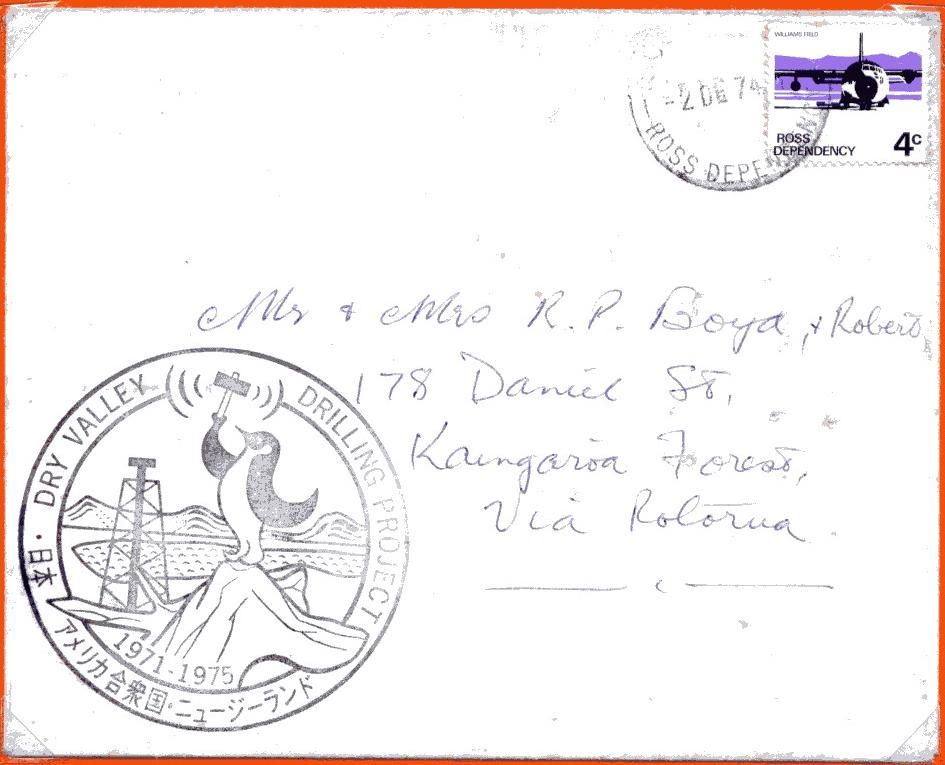 WILLIAMS FIELD
ROSS
DEPENDENCY
4c
-2 DE 74
ROSS DEPENDENC
Mr & Mrs R. P. Boyd, & Robert,
178 Daniel St,
Kaingaroa Forest,
Via Rotorua
DRY VALLEY DRILLING PROJECT
日本
1971-1975
アメリカ合衆国・ニュージーランド